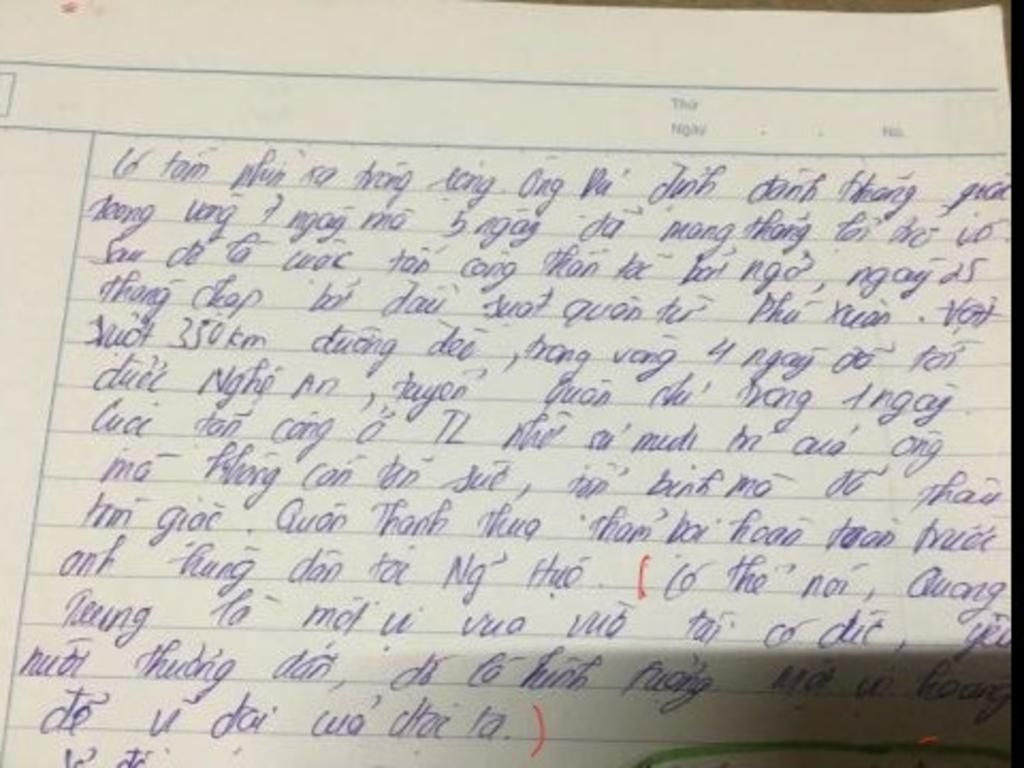 Thứ
Ngày . . No.
Có tầm nhìn xa trông rộng. Ông dự định đánh thắng giặc
trong vòng 7 ngày mà 5 ngày đã mang thắng lợi trở về.
Sau đó là cuộc tấn công thần tốc bất ngờ, ngày 25
tháng chạp bắt đầu xuất quân từ Phú Xuân. Vượt
suốt 350km đường đèo, trong vòng 4 ngày đã tới
được Nghệ An, tuyển quân chỉ trong 1 ngày.
Cuộc tấn công ở TL nhờ sự mưu trí của ông
mà không cần tốn sức, tốn binh mà đã
giặc. Quân Thanh thua thảm bại hoàn toàn trước
anh hùng dân tộc Ng Huệ. (Có thể nói, Quang
Trung là một vị vua vừa tài có đức, yêu
nước thương dân, đó là hình tượng một vị hoàng
đế vĩ đại của ta.)